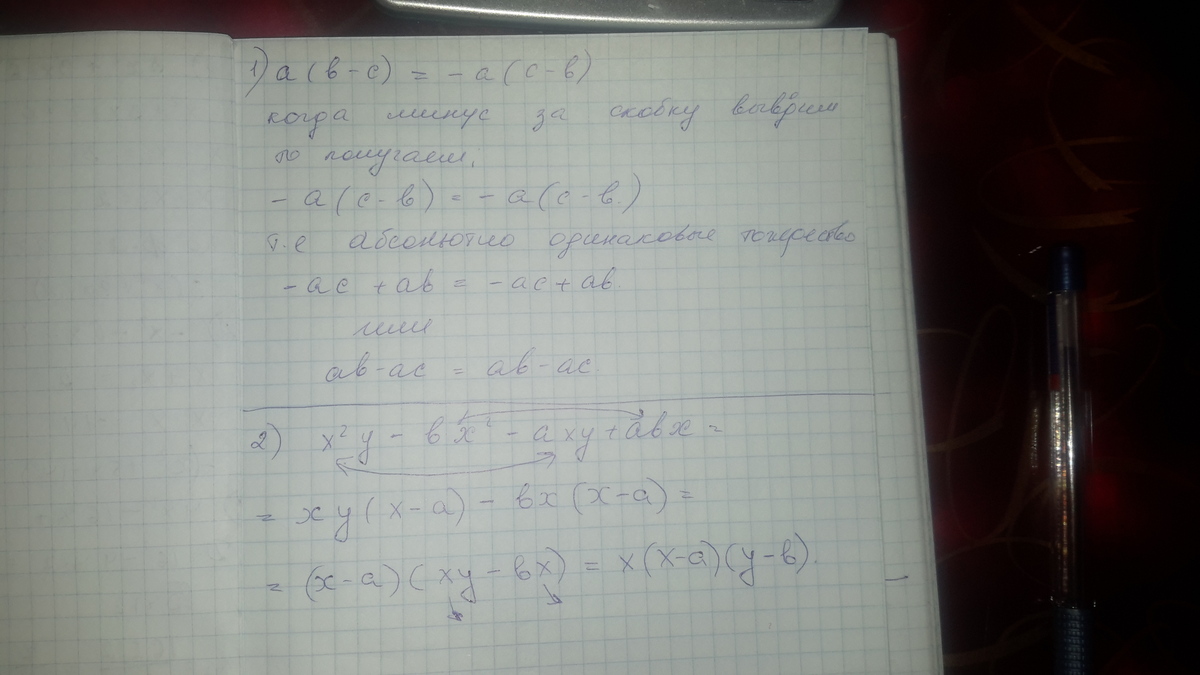 1) a(в-c) = -a(c-в)
когда минус за скобку выводим
то получаем,
-a(c-в) = -a(c-в)
т.е абсолютно одинаковые тождество
-ac + aв = -ac + aв.
или
aв-ac = aв-ac
2) x²y - вx² - axy + aвx =
= xy(x-a) - вx(x-a) =
= (x-a)(xy-вx) = x(x-a)(y-в).